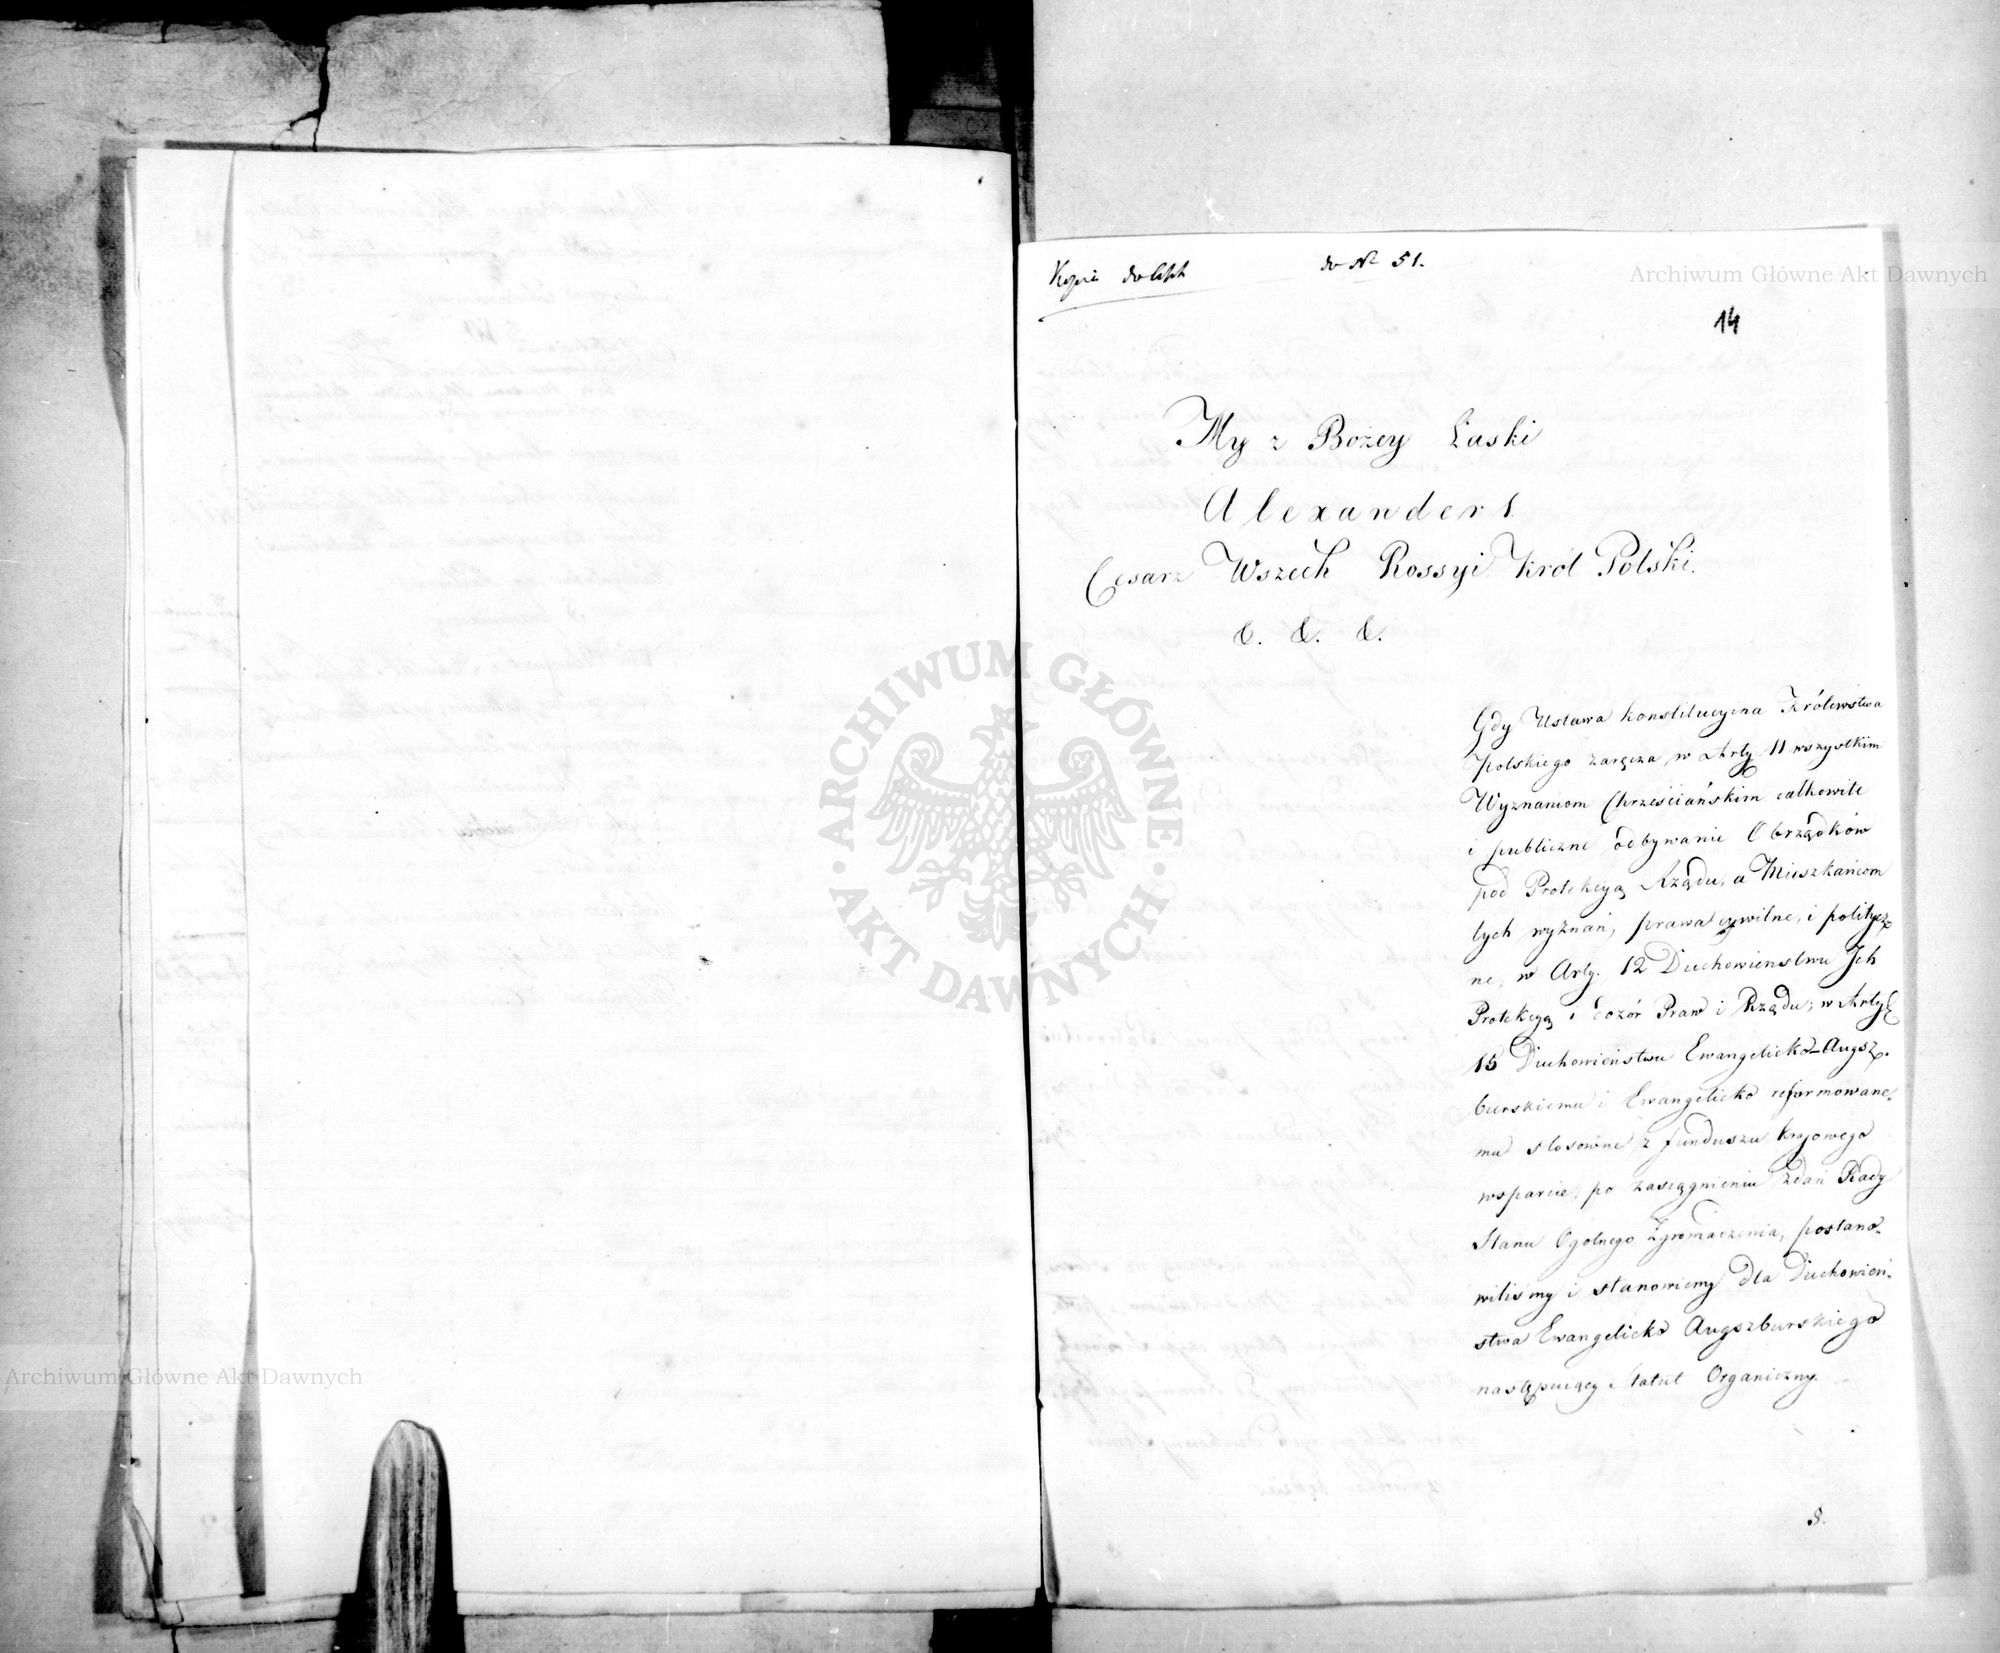 Kopia do
do Nr 51.
14
My z Bożey Łaski
Alexander I.
Cesarz Wszech Rossyi Król Polski.
&. &. &.
Gdy Ustawa konstitucyjna Królewstwa
Polskiego zaręcza w Arty 11 wszystkim
Wyznaniom Chrześciańskim całkowite
i publiczne odbywanie Obrządków
pod Protekcyą Rządu, a Mieszkańcom
tych wyznań, prawa cywilne, i politycz-
ne, w Arty. 12 Duchowieństwu Ich
Protekcyą i dozór Praw i Rządu; w Arty
15 Duchowieństwu Ewangelicko-Augsz-
burskiemu i Ewangelicko reformowane-
mu stosowne z funduszu krajowego
wsparcie, po zasięgnieniu zdań Rady
Stanu Ogolnego Zgromadzenia, postano-
wiliśmy i stanowiemy dla Duchowień-
stwa Ewangelicko Augszburskiego
następuiący Statut Organiczny.
§.
Archiwum Główne Akt Dawnych
Archiwum Główne Akt Dawnych
ARCHIWUM GŁÓWNE
· AKT DAWNYCH ·